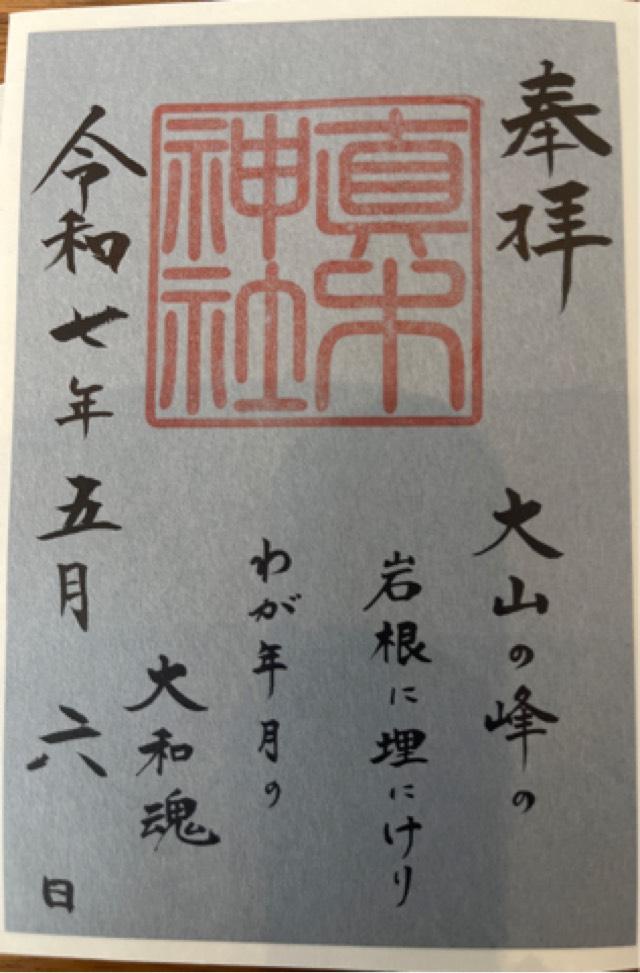 奉拝
真木神社
大山の峰の
岩根に埋にけり
わが年月の
大和魂
令和七年五月六日